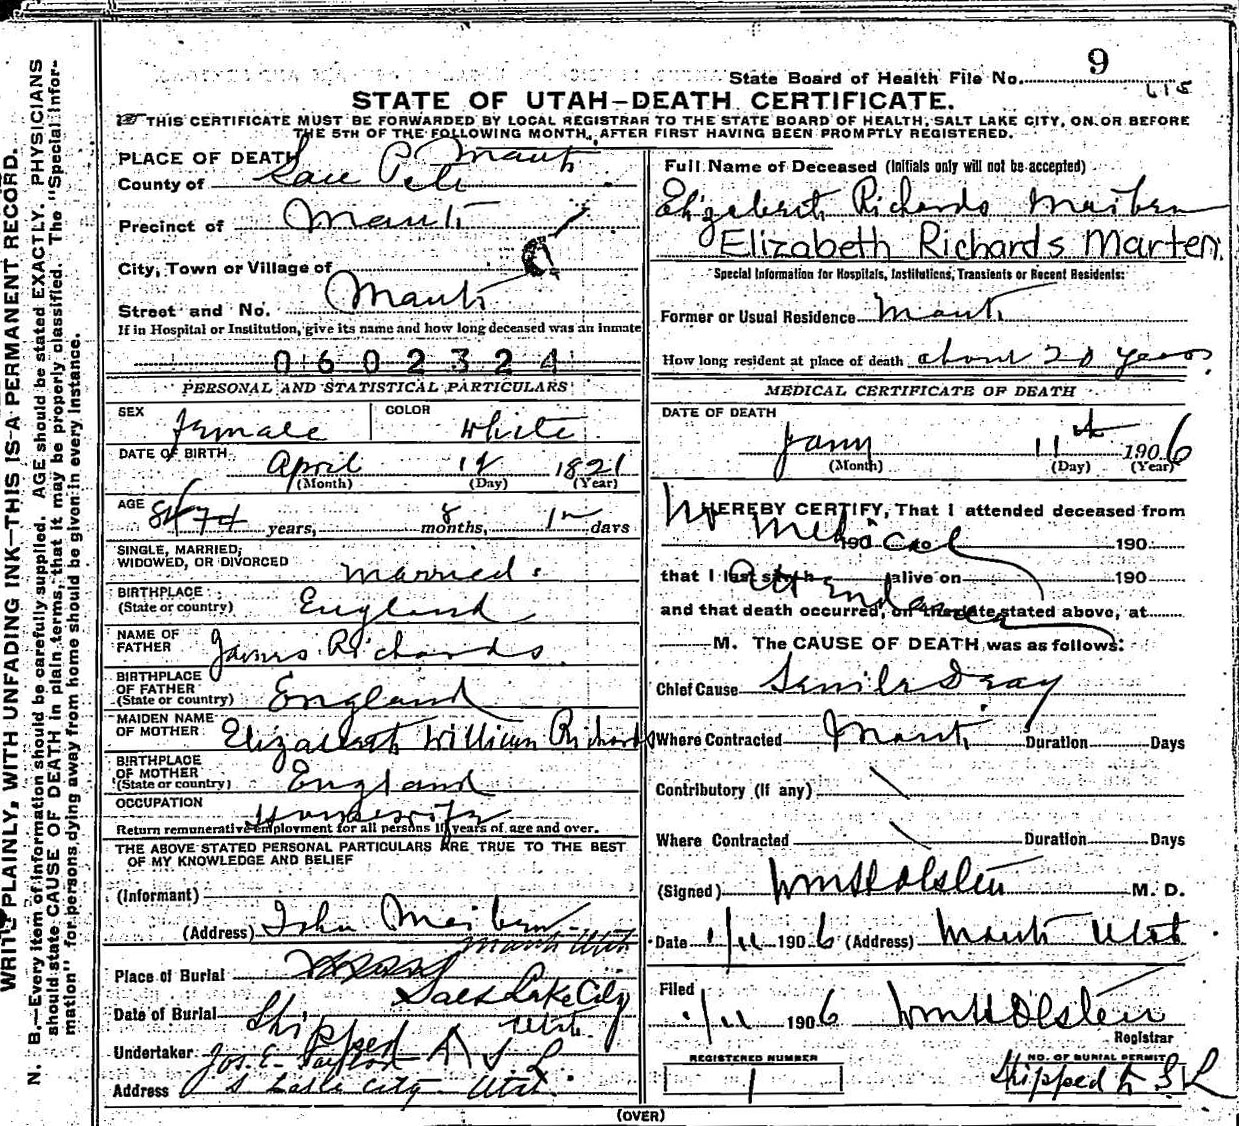 9
State Board of Health File No.
615
STATE OF UTAH—DEATH CERTIFICATE.
THIS CERTIFICATE MUST BE FORWARDED BY LOCAL REGISTRAR TO THE STATE BOARD OF HEALTH, SALT LAKE CITY, ON OR BEFORE
THE 5TH OF THE FOLLOWING MONTH, AFTER FIRST HAVING BEEN PROMPTLY REGISTERED.
WRITE PLAINLY, WITH UNFADING INK—THIS IS A PERMANENT RECORD.
N. B.—Every item of information should be carefully supplied. AGE should be stated EXACTLY. PHYSICIANS
should state CAUSE OF DEATH in plain terms, that it may be properly classified. The "Special Infor-
mation" for persons dying away from home should be given in every instance.
PLACE OF DEATH Manti
County of San Pete
Precinct of Manti
City, Town or Village of
Street and No. Manti
If in Hospital or Institution, give its name and how long deceased was an inmate
0602324
PERSONAL AND STATISTICAL PARTICULARS
SEX female COLOR White
DATE OF BIRTH April 14 1821
(Month) (Day) (Year)
AGE 84 years, 8 months, days
SINGLE, MARRIED,
WIDOWED, OR DIVORCED married.
BIRTHPLACE
(State or country) England
NAME OF
FATHER James Richards
BIRTHPLACE
OF FATHER
(State or country) England
MAIDEN NAME
OF MOTHER Elizabeth William Richards
BIRTHPLACE
OF MOTHER
(State or country) England
OCCUPATION Housewife
Return remunerative employment for all persons 10 years of age and over.
THE ABOVE STATED PERSONAL PARTICULARS ARE TRUE TO THE BEST
OF MY KNOWLEDGE AND BELIEF
(Informant)
(Address) John Maiben
Manti Utah
Place of Burial
Salt Lake City
Utah
Date of Burial Shipped
Undertaker Jos. E. Taylor
Address S Lake City Utah
Full Name of Deceased (Initials only will not be accepted)
Elizabeth Richards Maiben
Elizabeth Richards Marten.
Special Information for Hospitals, Institutions, Transients or Recent Residents:
Former or Usual Residence Manti
How long resident at place of death about 20 years
MEDICAL CERTIFICATE OF DEATH
DATE OF DEATH
Jany 11th 1906
(Month) (Day) (Year)
I HEREBY CERTIFY, That I attended deceased from
No Medical
190 to 190
that I last saw h alive on 190
Attendance
and that death occurred, on the date stated above, at
M. The CAUSE OF DEATH was as follows:
Chief Cause Senile Dcay
Where Contracted Manti Duration Days
Contributory (If any)
Where Contracted Duration Days
(Signed) Wm H Olsten M. D.
Date 1/11 1906 (Address) Manti Utah
Filed
1/11 1906 Wm H Olstein
Registrar
REGISTERED NUMBER
1
NO. OF BURIAL PERMIT
Shipped to S L
(OVER)